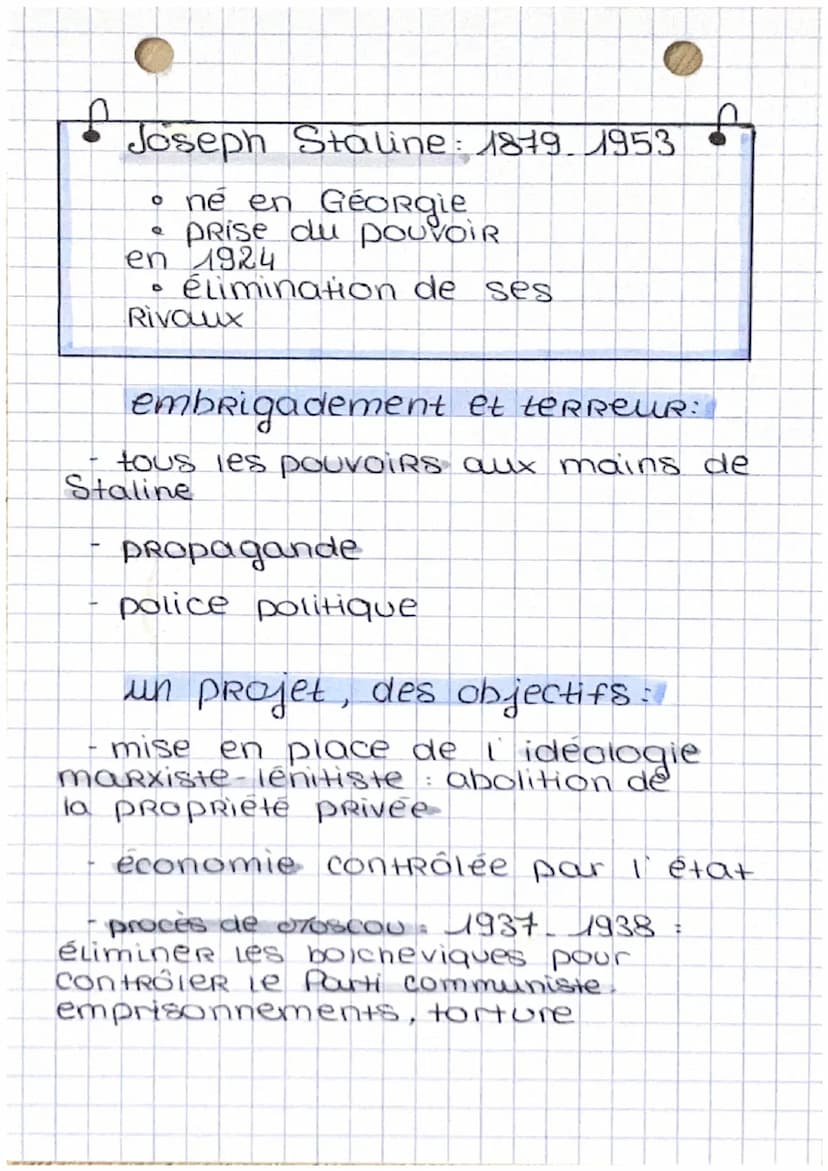 Joseph Staline : 1879 - 1953
• né en Géorgie
• prise du pouvoir
en 1924
• élimination de ses
rivaux
embrigadement et terreur :
- tous les pouvoirs aux mains de
Staline
- propagande
- police politique
un projet, des objectifs :
- mise en place de l'idéologie
marxiste-lénitiste : abolition de
la propriété privée
- économie contrôlée par l'état
- procès de Moscou : 1937 - 1938 :
éliminer les bolcheviques pour
contrôler le Parti communiste.
emprisonnements, torture